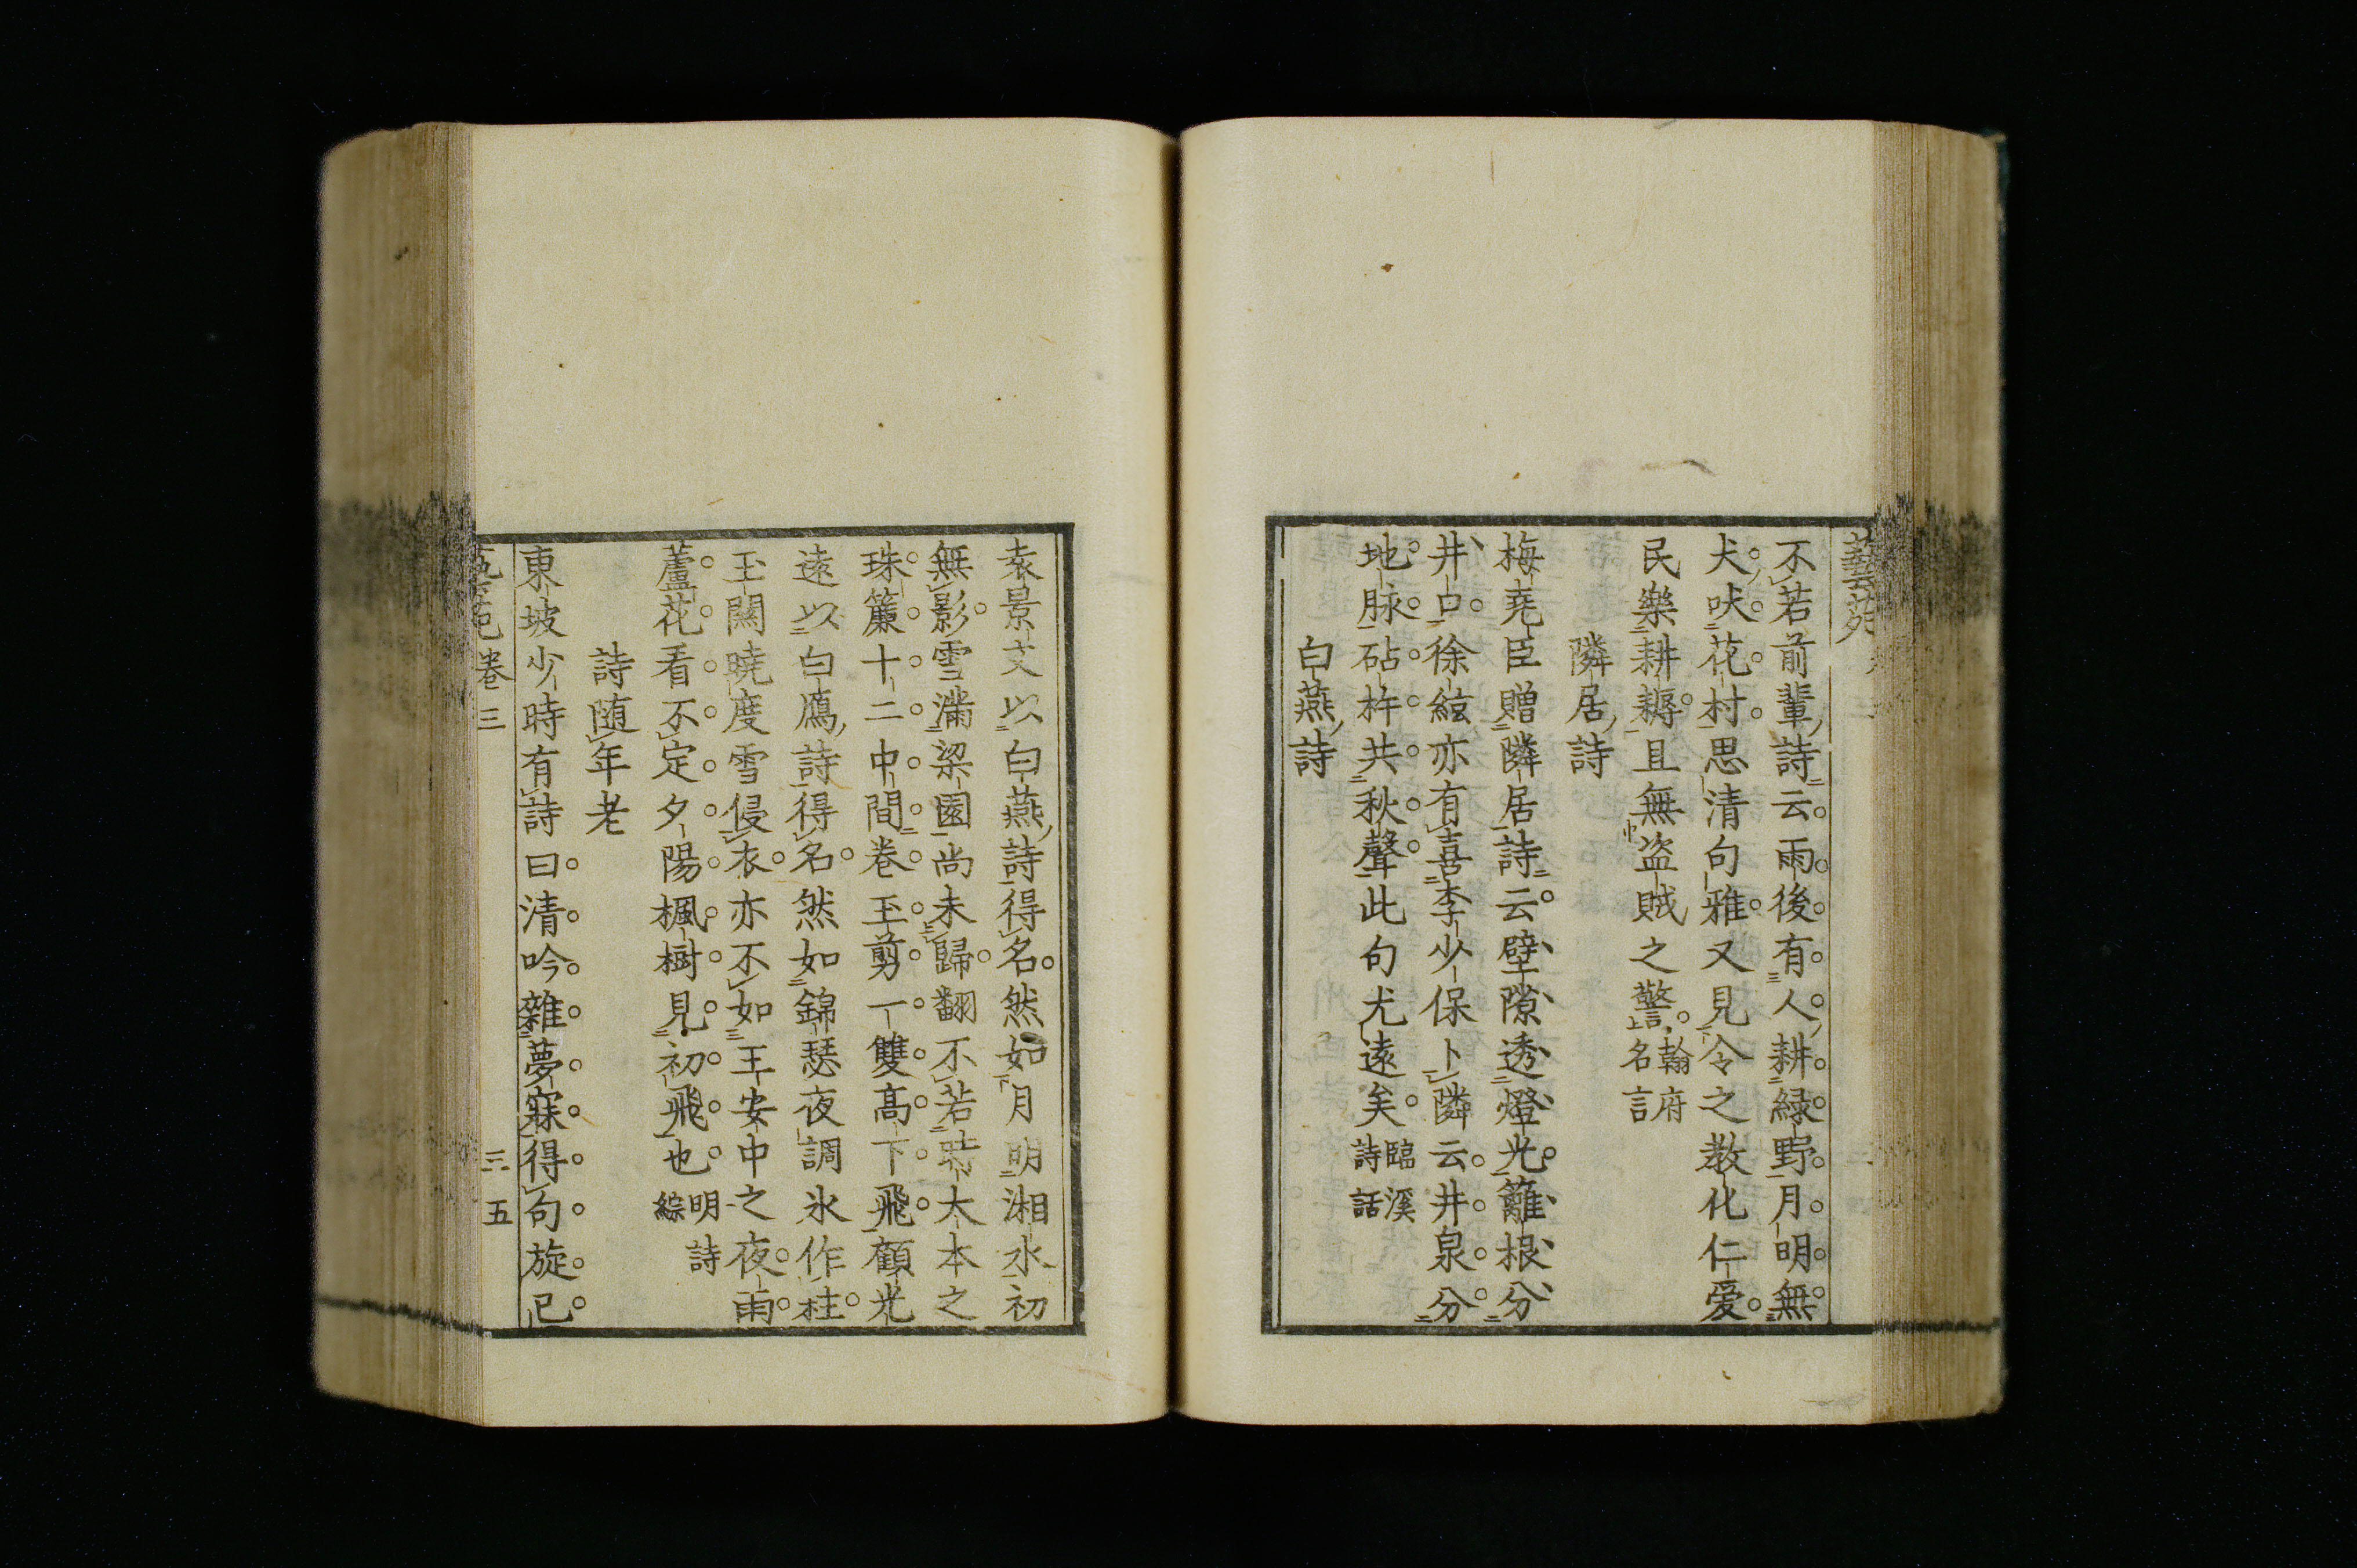 藝苑
不若前輩詩云雨後有人耕緑野月明無
犬吠花村思清句雅又見令之教化仁爱
民樂耕耨且無盗賊之警翰府名言
隣居詩
梅尭臣贈隣居詩云壁隙透燈光籬根分
井口徐絃亦有喜李少保卜隣云井泉分
地脉砧杵共秋聲此句尤遠矣臨溪詩話
白燕詩
袁景文以白燕詩得名然如月明湘水初
無影雪滿梁園尚未歸翻不若時大本之
珠簾十二中間巻玉剪一雙髙下飛顧光
遠以白鴈詩得名然如錦瑟夜調氷作柱
玉關曉度雪侵衣亦不如王安中之夜雨
蘆花看不定夕陽楓樹見初飛也明詩綜
詩随年老
東坡少時有詩曰清吟雜夢寐得句旋已
苑卷三
五